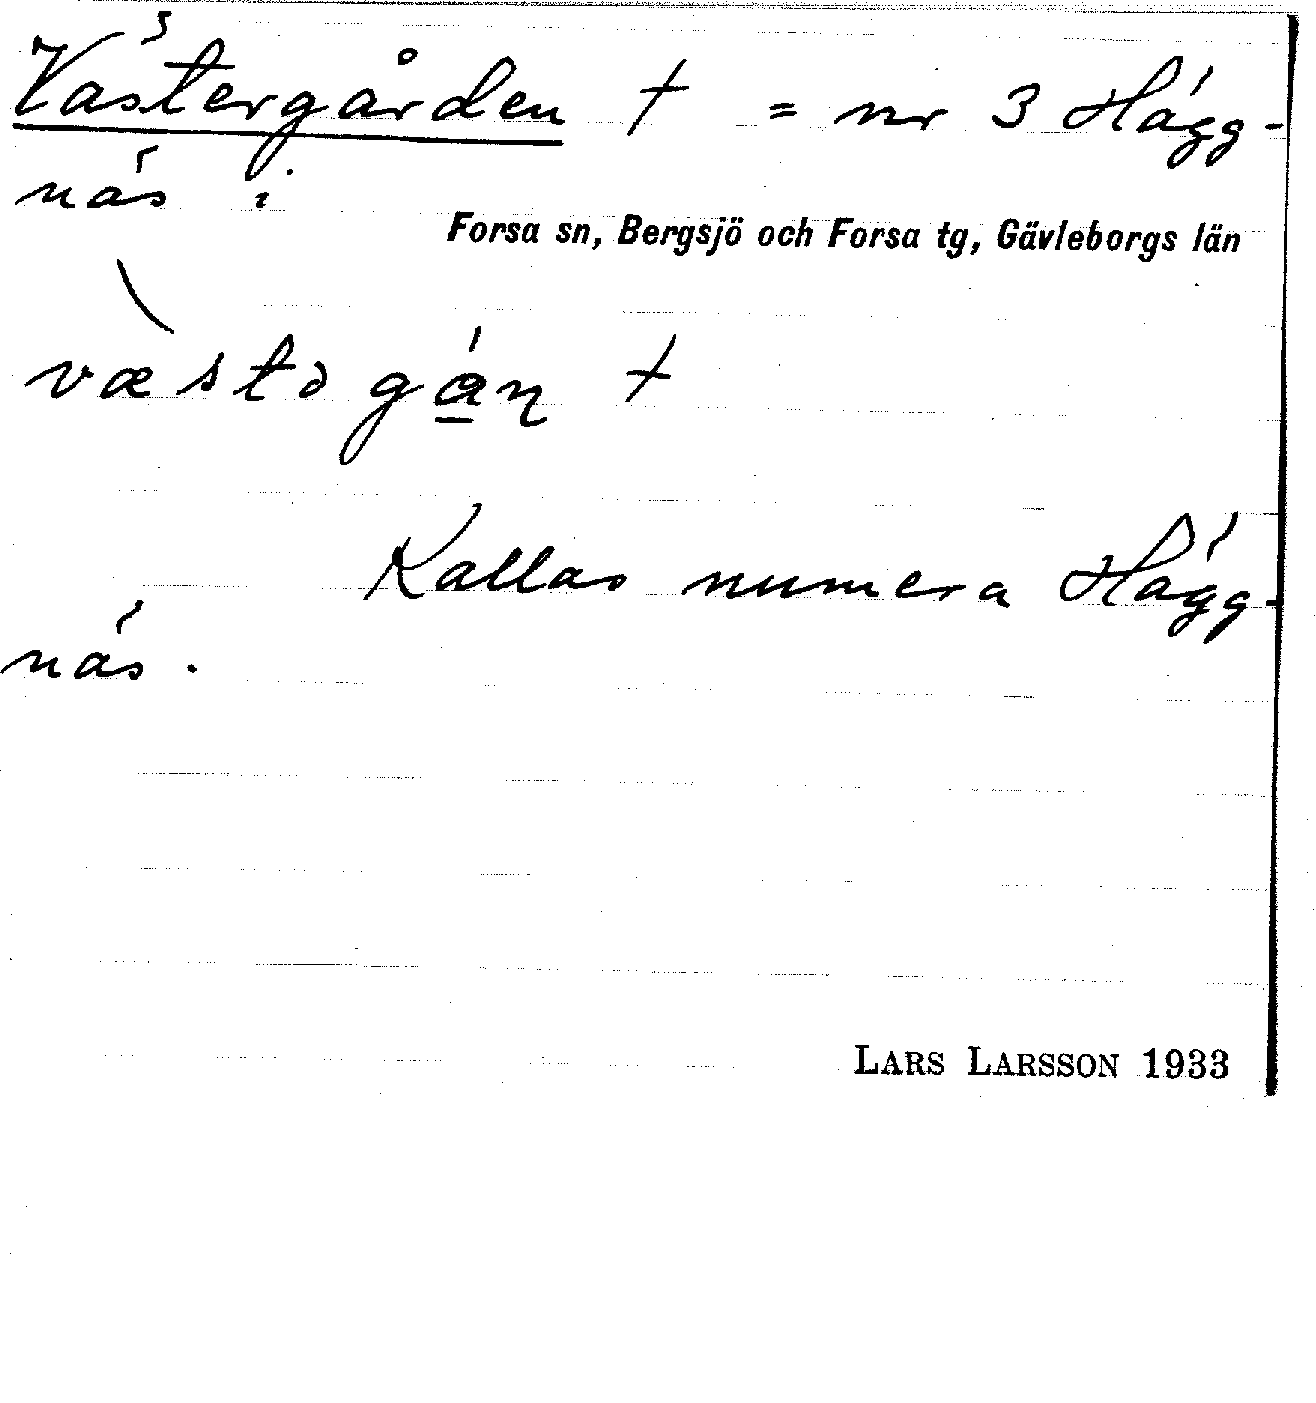 Västergården † = nr 3 Hägg-
näs i
Forsa sn, Bergsjö och Forsa tg, Gävleborgs län
væ̀stəgá̠ɳ †
Kallas numera Hägg-
näs.
LARS LARSSON 1933